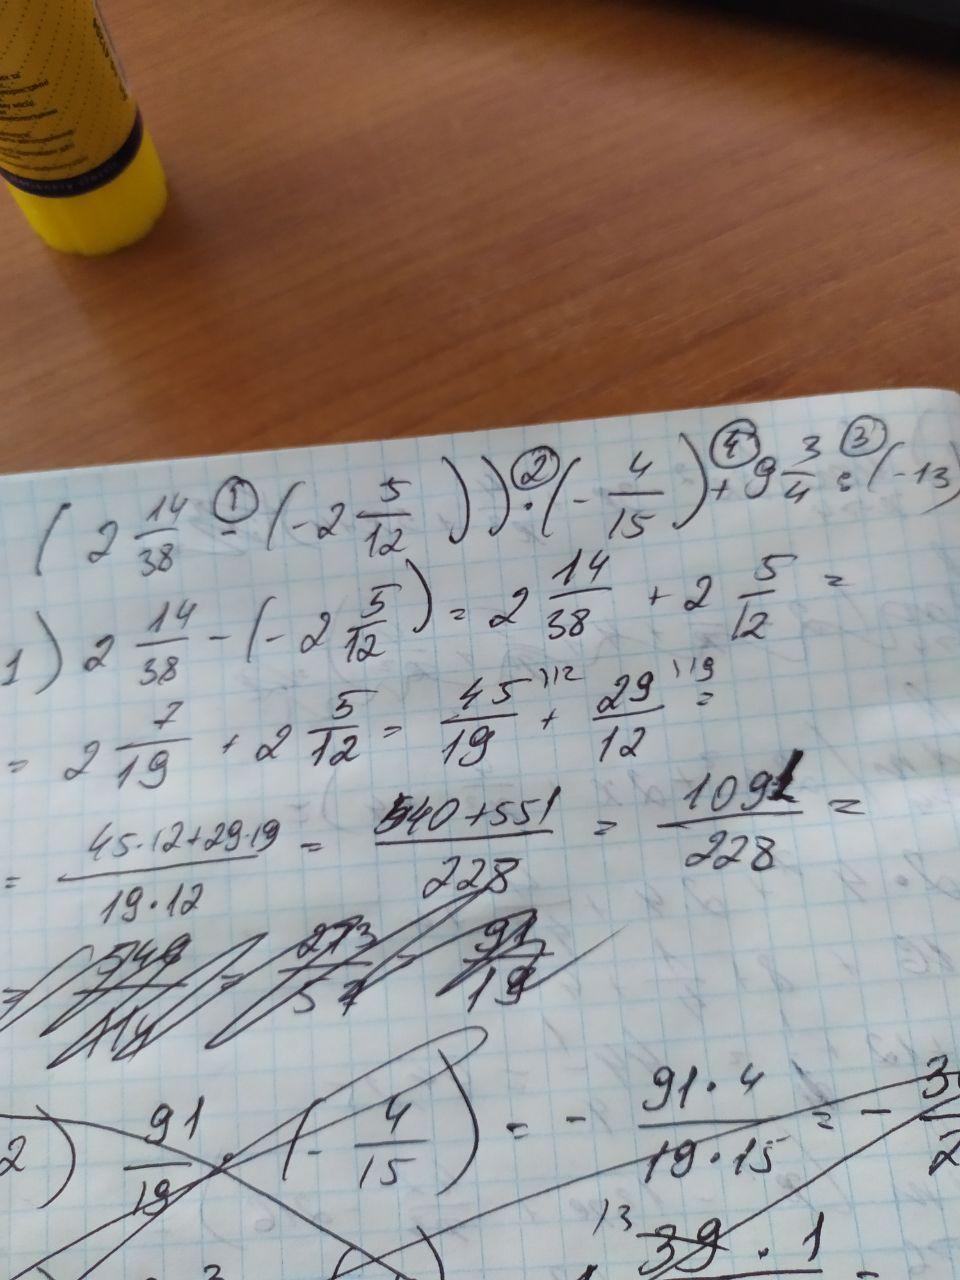 (2 14/38 - (-2 5/12)) · (-4/15) + 9 3/4 : (-13)
① ② ④ ③
1) 2 14/38 - (-2 5/12) = 2 14/38 + 2 5/12 =
= 2 7/19 + 2 5/12 = 45/19 )12 + 29/12 )19 =
= 45·12+29·19/19·12 = 540+551/228 = 1091/228 =
= 549/114 = 273/57 = 91/19
2) 91/19 · (-4/15) = - 91·4/19·15 = -
13 39 · 1